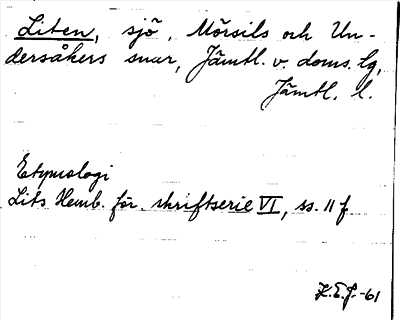 Liten, sjö, Mörsils och Un-
dersåkers snar, Jämtl. v. doms. lg,
Jämtl. l.
Etymologi
Lits Hemb. för. skriftserie VI, ss. 11 f
K.E.J.-61